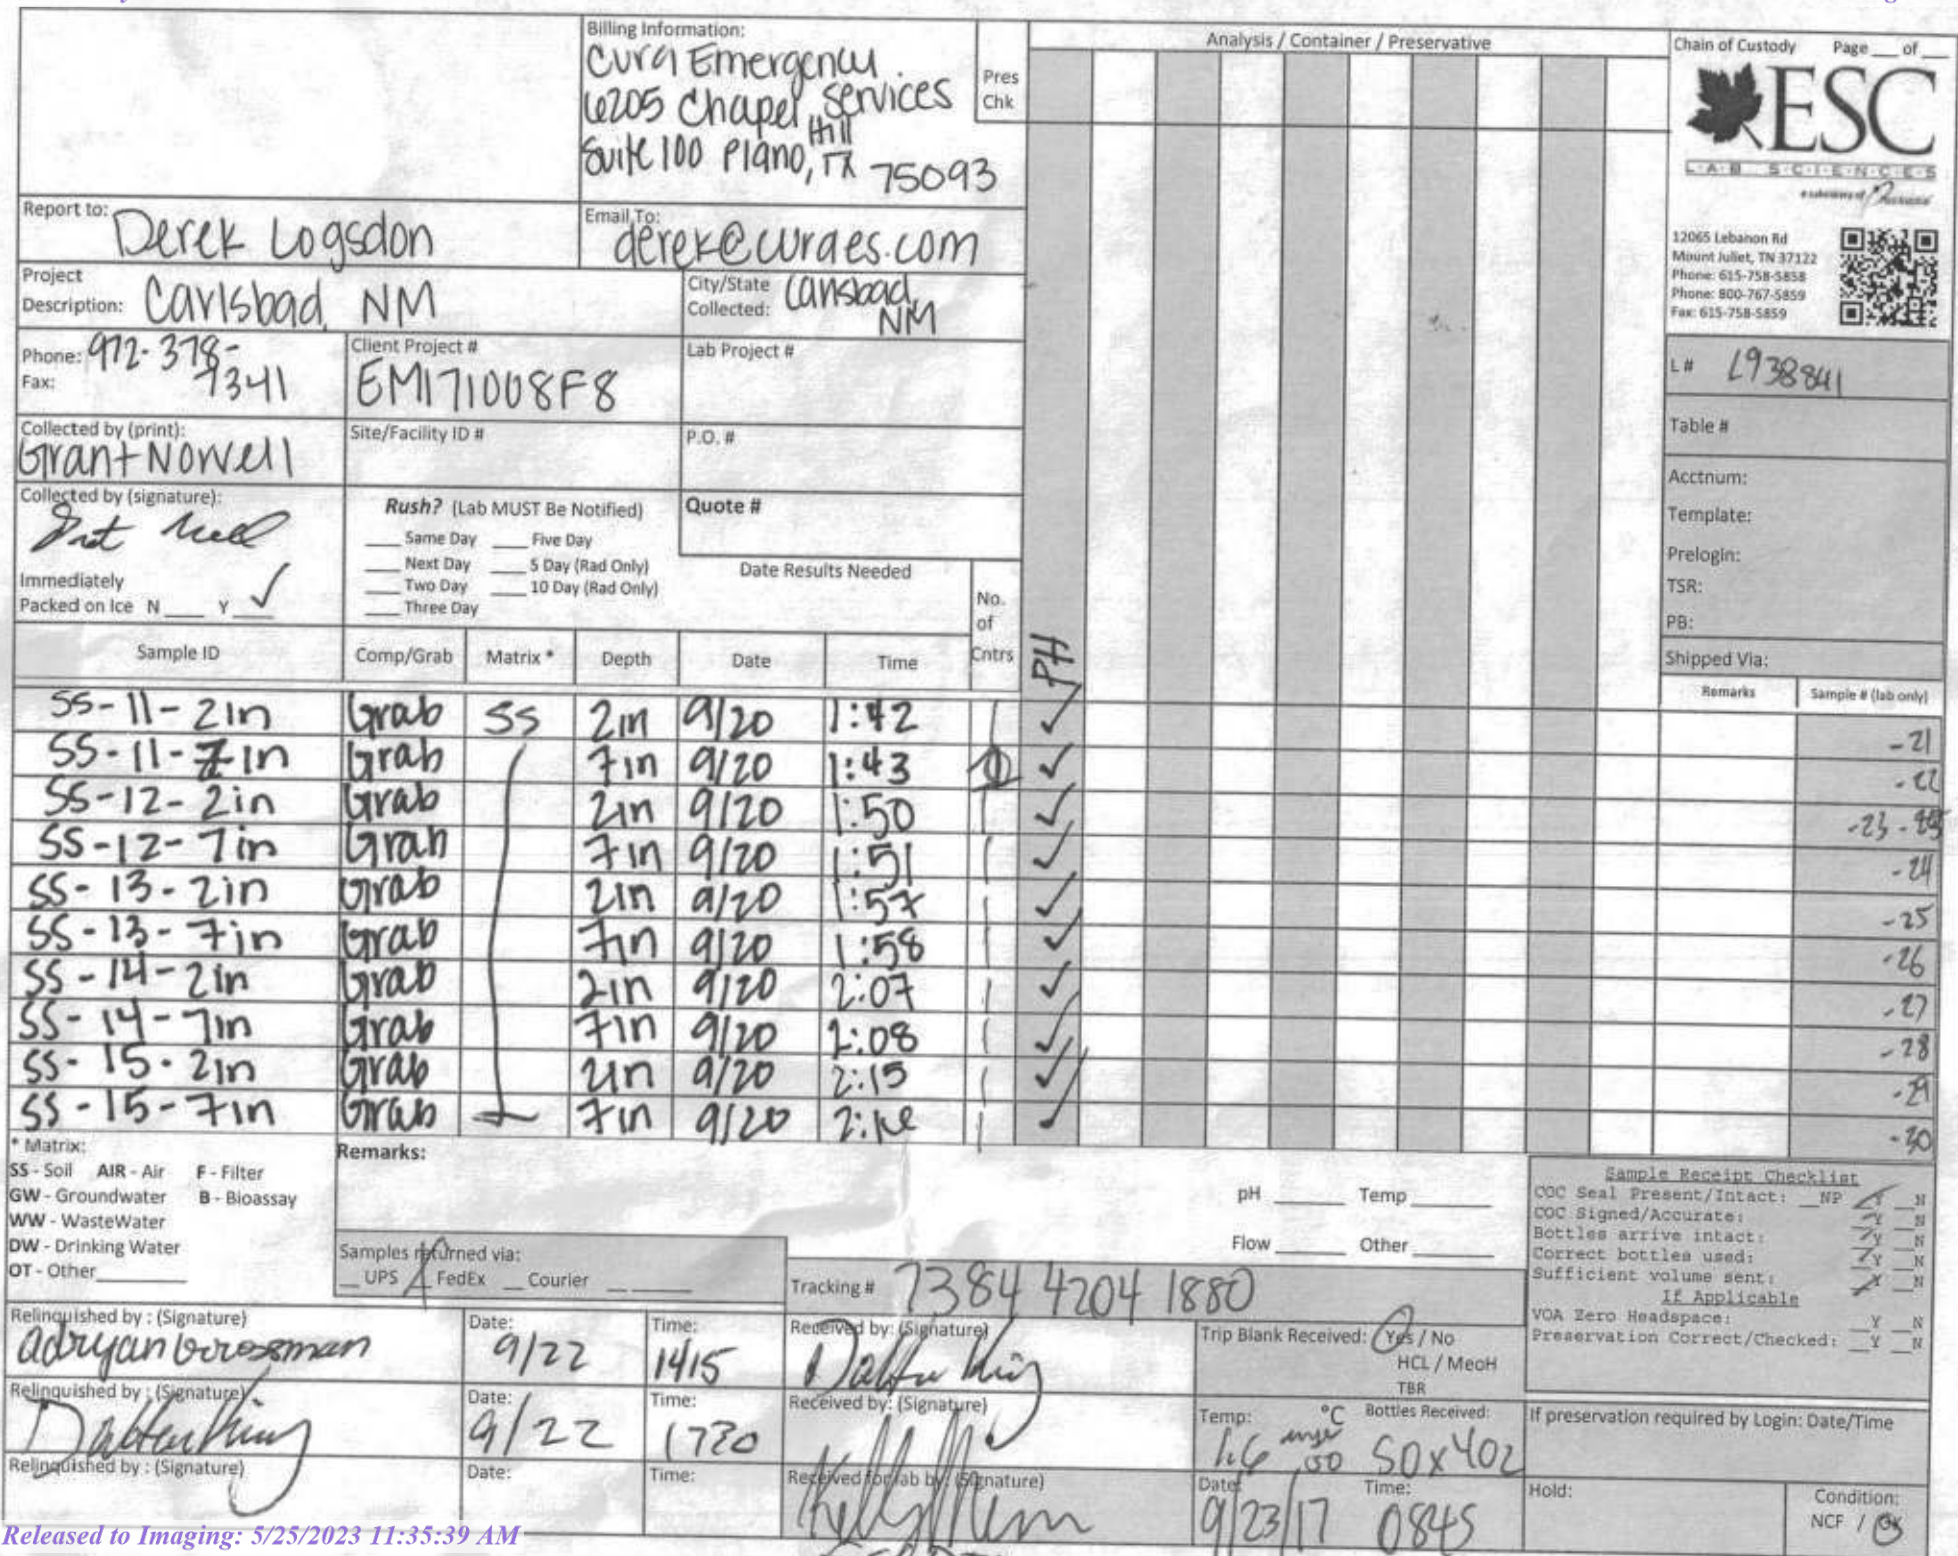 Billing Information:
Cura Emergency
Services
6205 Chapel Hill
Suite 100 Plano, TX 75093
Pres
Chk
Analysis / Container / Preservative
Chain of Custody Page ___ of ___
ESC
L·A·B S·C·I·E·N·C·E·S
a subsidiary of
12065 Lebanon Rd
Mount Juliet, TN 37122
Phone: 615-758-5858
Phone: 800-767-5859
Fax: 615-758-5859
Report to: Derek Logsdon
Email To: derek@curaes.com
Project
Description: Carlsbad, NM
City/State
Collected: Carlsbad, NM
Phone: 972-378-
7341
Fax:
Client Project #
EM171008F8
Lab Project #
L# L938841
Table #
Collected by (print):
Grant Nowell
Site/Facility ID #
P.O. #
Acctnum:
Template:
Prelogin:
TSR:
PB:
Collected by (signature):
Rush? (Lab MUST Be Notified)
___ Same Day ___ Five Day
___ Next Day ___ 5 Day (Rad Only)
___ Two Day ___ 10 Day (Rad Only)
___ Three Day
Quote #
Date Results Needed
Immediately
Packed on Ice N ___ Y ✓
No.
of
Cntrs
PH
Shipped Via:
Sample ID Comp/Grab Matrix * Depth Date Time
Remarks Sample # (lab only)
SS-11-2in Grab SS 2in 9/20 1:42 1 ✓ -21
SS-11-7in Grab 7in 9/20 1:43 1 ✓ -22
SS-12-2in Grab 2in 9/20 1:50 1 ✓ -23
SS-12-7in Grab 7in 9/20 1:51 1 ✓ -24
SS-13-2in Grab 2in 9/20 1:57 1 ✓ -25
SS-13-7in Grab 7in 9/20 1:58 1 ✓ -26
SS-14-2in Grab 2in 9/20 2:07 1 ✓ -27
SS-14-7in Grab 7in 9/20 2:08 1 ✓ -28
SS-15-2in Grab 2in 9/20 2:15 1 ✓ -29
SS-15-7in Grab 7in 9/20 2:16 1 ✓ -30
* Matrix:
SS - Soil AIR - Air F - Filter
GW - Groundwater B - Bioassay
WW - WasteWater
DW - Drinking Water
OT - Other
Remarks:
pH ___ Temp ___
Flow ___ Other ___
Sample Receipt Checklist
COC Seal Present/Intact: __NP ✓Y __N
COC Signed/Accurate: ✓Y __N
Bottles arrive intact: ✓Y __N
Correct bottles used: ✓Y __N
Sufficient volume sent: ✓Y __N
If Applicable
VOA Zero Headspace: __Y __N
Preservation Correct/Checked: __Y __N
Samples returned via:
__ UPS FedEx __ Courier
Tracking # 7384 4204 1880
Relinquished by : (Signature)
adryan Grossman
Date: 9/22
Time: 1415
Received by: (Signature)
Trip Blank Received: Yes / No
HCL / MeoH
TBR
Relinquished by : (Signature)
Date: 9/22
Time: 1730
Received by: (Signature)
Temp: °C
1.6
Bottles Received:
50x4oz
If preservation required by Login: Date/Time
Relinquished by : (Signature)
Date:
Time:
Received for lab by: (Signature)
Date: 9/23/17
Time: 0845
Hold:
Condition:
NCF / OK
Released to Imaging: 5/25/2023 11:35:39 AM